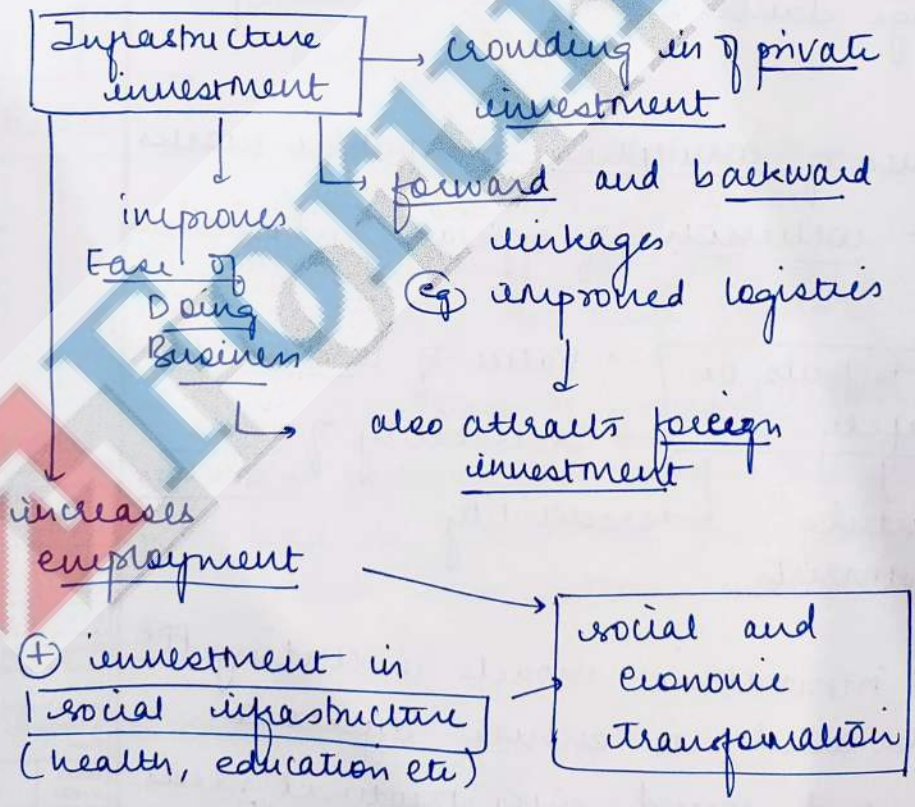 Infrastructure
investment
crowding in of private
investment
forward and backward
linkages
eg improved logistics
improves
Ease of
Doing
Business
also attracts foreign
investment
increases
employment
+ investment in
social infrastructure
(health, education etc)
social and
economic
transformation
Forum